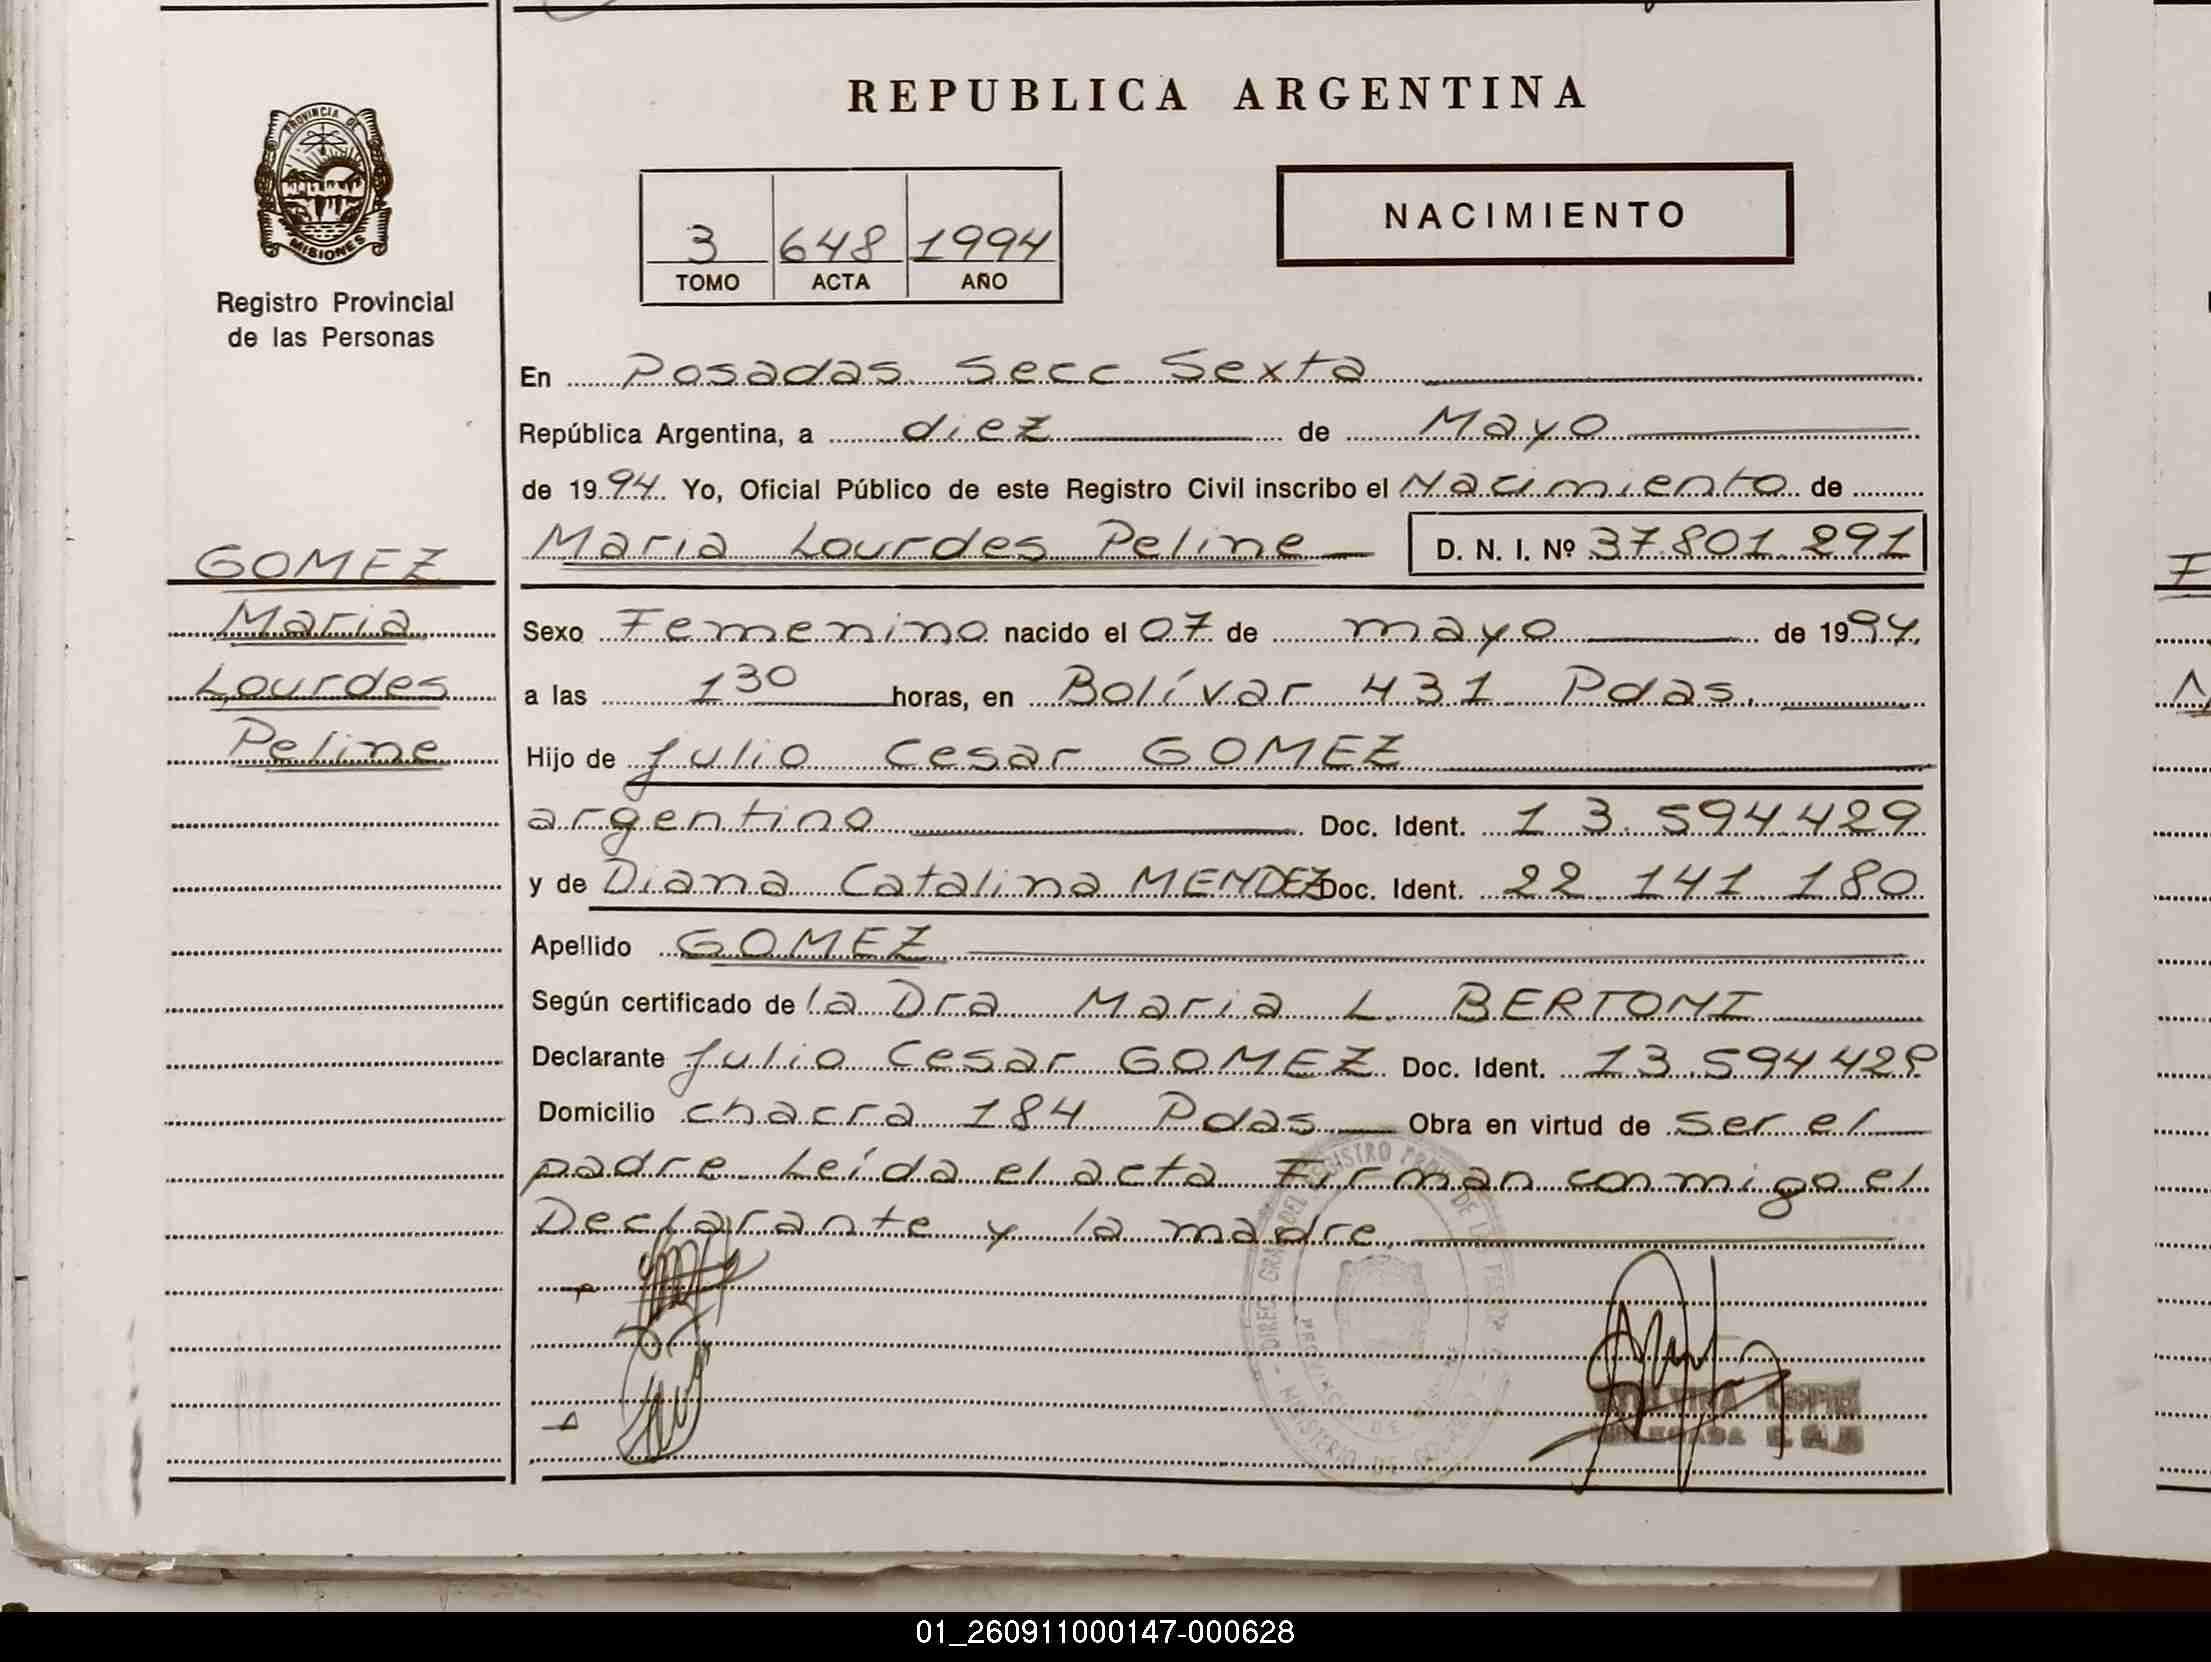 REPUBLICA ARGENTINA
PROVINCIA DE
MISIONES
Registro Provincial
de las Personas
3 648 1994
TOMO ACTA AÑO
NACIMIENTO
En Posadas Secc Sexta
República Argentina, a diez de Mayo
de 1994. Yo, Oficial Público de este Registro Civil inscribo el Nacimiento de
Maria Lourdes Peline D. N. I. Nº 37.801.291
GOMEZ
Maria
Lourdes
Peline
Sexo Femenino nacido el 07 de mayo de 1994.
a las 1 30 horas, en Bolívar 431 Pdas.
Hijo de Julio Cesar GOMEZ
argentino Doc. Ident. 13.594.429
y de Diana Catalina MENDEZ Doc. Ident. 22 141 180
Apellido GOMEZ
Según certificado de la Dra Maria L. BERTONI
Declarante Julio Cesar GOMEZ Doc. Ident. 13.594 429
Domicilio chacra 184 Pdas Obra en virtud de ser el
padre. Leída el acta Firman conmigo el
Declarante y la madre.
MINISTERIO DE GOBIERNO
01_260911000147-000628